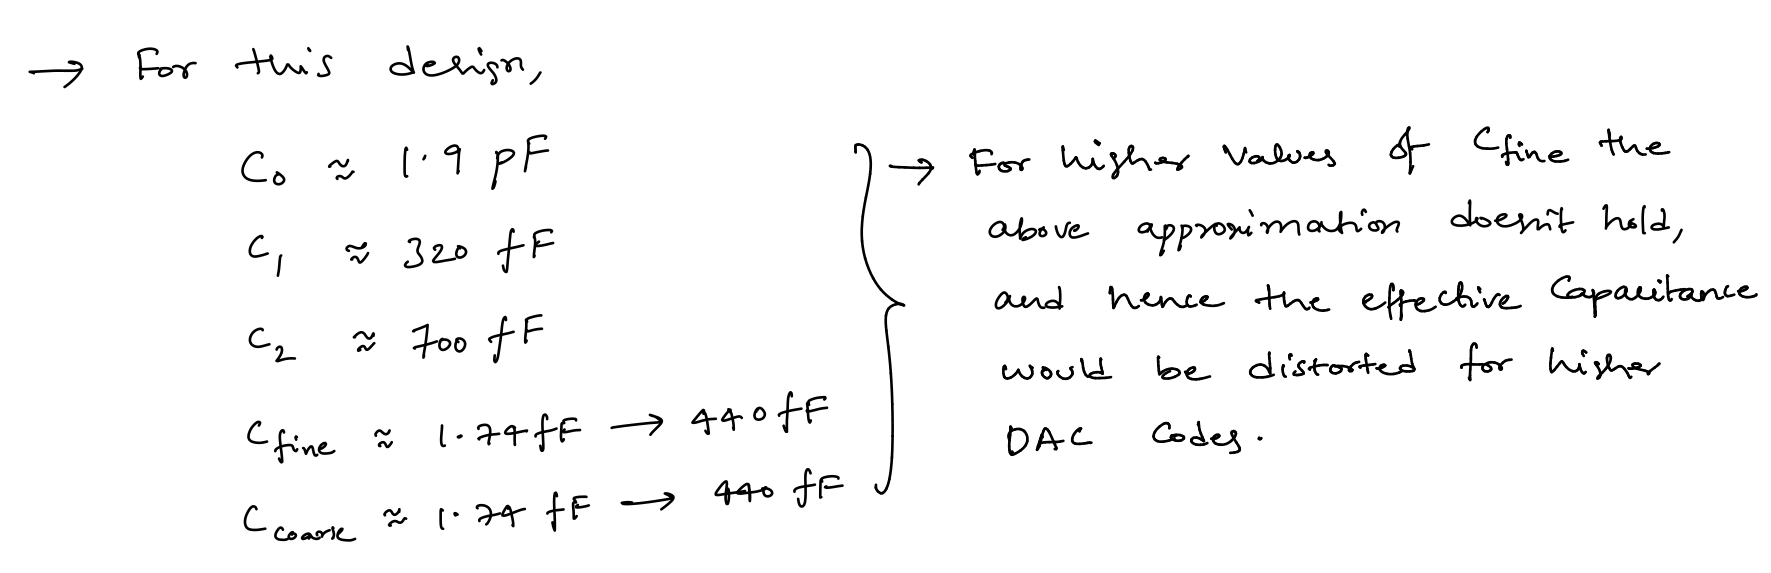 → For this design,
C₀ ≈ 1.9 pF
C₁ ≈ 320 fF
C₂ ≈ 700 fF
C_fine ≈ 1.74 fF → 440 fF
C_coarse ≈ 1.74 fF → 440 fF
→ For higher values of C_fine the
above approximation doesn't hold,
and hence the effective Capacitance
would be distorted for higher
DAC Codes.